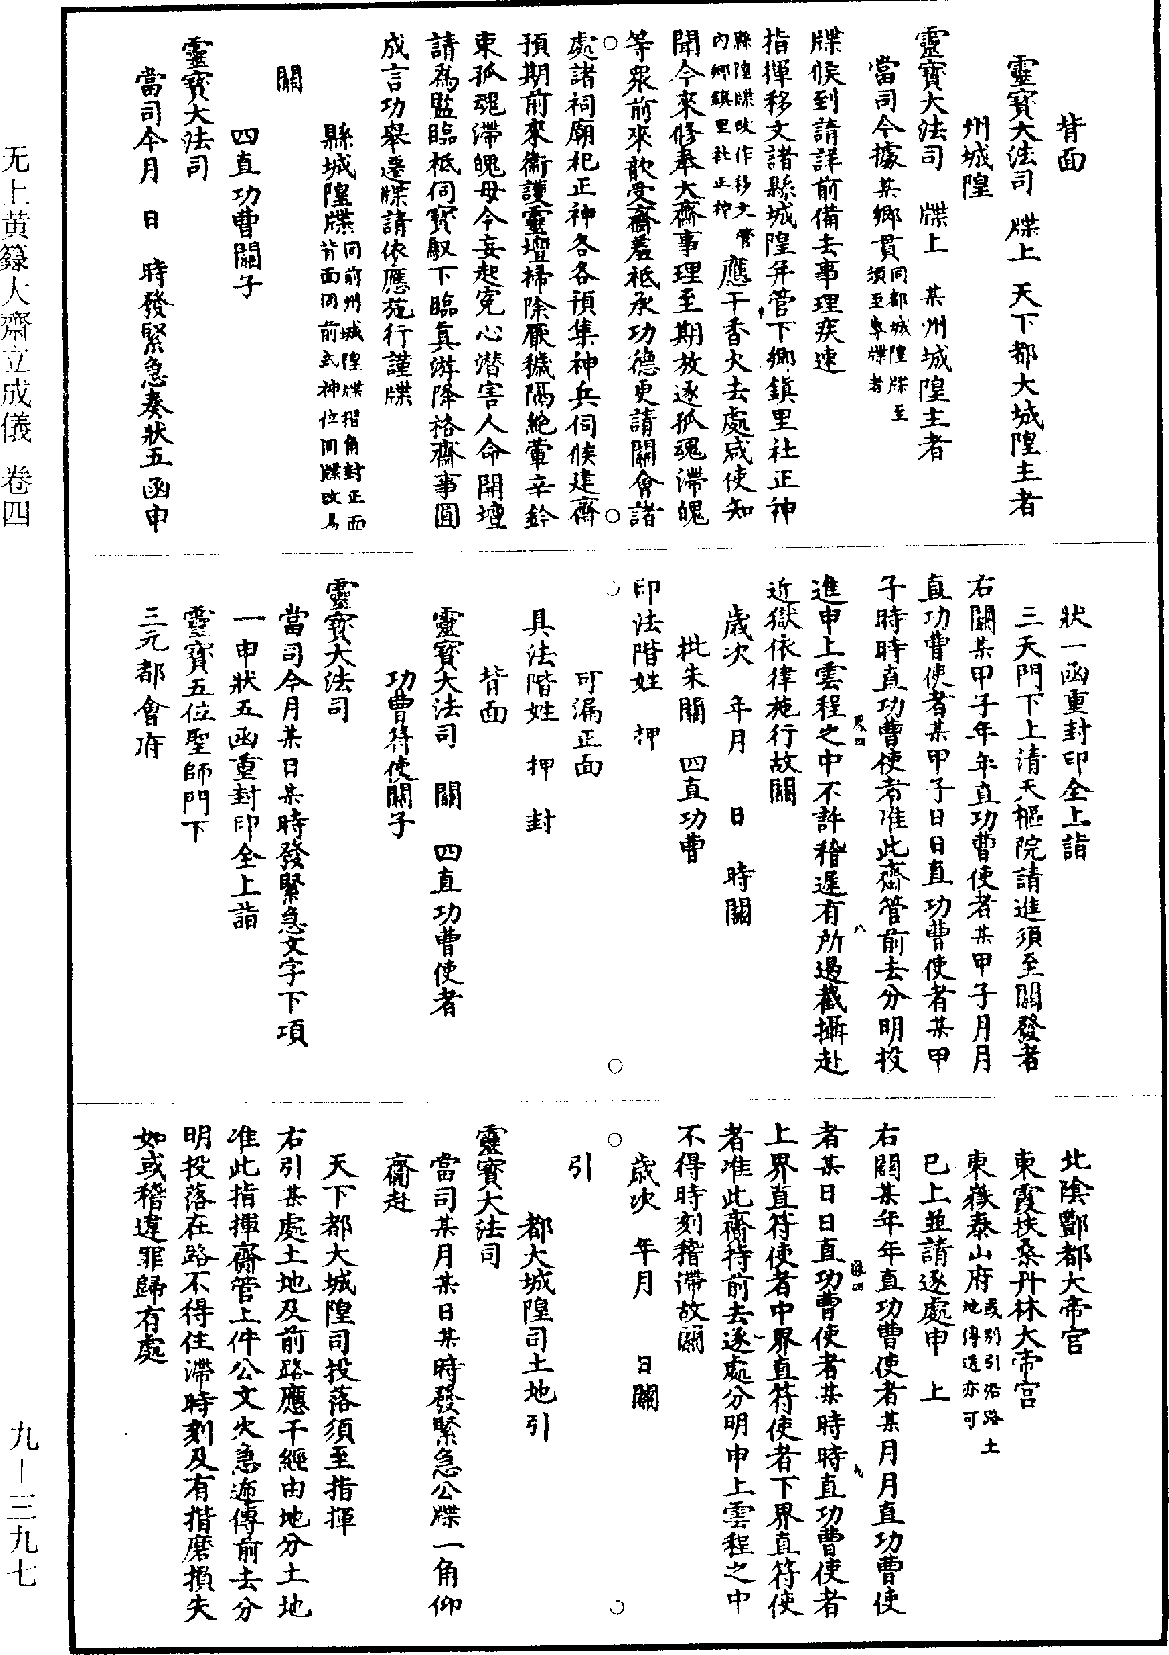 背面
靈寶大法司　牒上　天下都大城隍主者
州城隍
靈寶大法司　牒上　某州城隍主者
當司今據某鄉貫同都城隍牒至須至專牒者
牒候到請詳前備去事理疾速
指揮移文諸縣城隍并管下鄉鎮里社正神
縣隍牒改作移文管內鄉鎮里社正神應干香火去處咸使知
聞今來修奉大齋事理至期放逐孤魂滯魄
等眾前來歆受齋羞祗承功德更請關會諸
處諸祠廟祀正神各各預集神兵伺候建齋
預期前來衛護靈壇掃除厭穢隔絕葷辛鈐
束孤魂滯魄毋令妄起冤心潛害人命開壇
請為監臨祗伺寶馭下臨真游降格齋事圓
成言功舉遷牒請依應施行謹牒
縣城隍牒同前州城隍牒摺角封正面背面同前式神位同牒改易
關
四直功曹關子
靈寶大法司
當司今月　日　時發緊急奏狀五函申
狀一函重封印全上詣
三天門下上清天樞院請進須至關發者
右關某甲子年年直功曹使者某甲子月月
直功曹使者某甲子日日直功曹使者某甲
子時時直功曹使者准此齋管前去分明投
進申上雲程之中不許稽遲有所遏截攝赴
近獄依律施行故關
歲次　年月　日　時關
批朱關　四直功曹
印法階姓　押
可漏正面
具法階姓　押　封
背面
靈寶大法司　關　四直功曹使者
功曹符使關子
靈寶大法司
當司今月某日某時發緊急文字下項
一申狀五函重封印全上詣
靈寶五位聖師門下
三元都會府
北陰酆都大帝宮
東霞扶桑丹林大帝宮
東嶽泰山府或別引沿路土地傳送亦可
已上並請逐處申　上
右關某年年直功曹使者某月月直功曹使
者某日日直功曹使者某時時直功曹使者
上界直符使者中界直符使者下界直符使
者准此齋持前去逐處分明申上雲程之中
不得時刻稽滯故關
歲次　年月　日關
引
都大城隍司土地引
靈寶大法司
當司某月某日某時發緊急公牒一角仰
齋赴
天下都大城隍司投落須至指揮
右引某處土地及前路應干經由地分土地
准此指揮齋管上件公文火急遞傳前去分
明投落在路不得住滯時刻及有揩磨損失
如或稽違罪歸有處
无上黄籙大齋立成儀　卷四
九—三九七